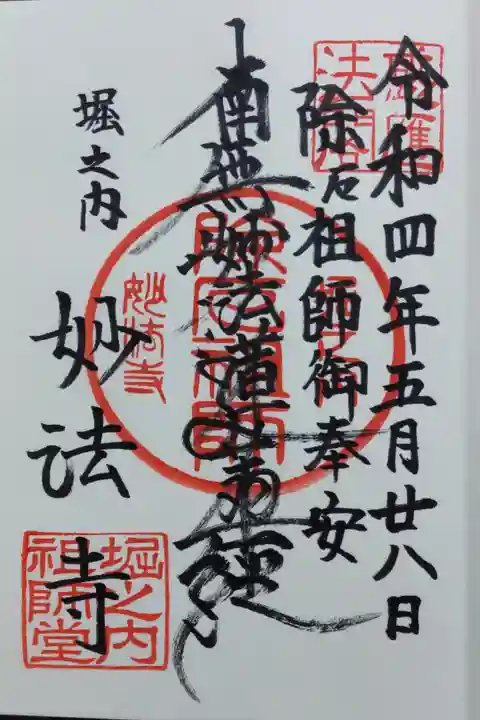 令和四年五月廿八日
除厄祖師御奉安
南無妙法蓮華經
堀之内
妙法寺
除厄祖師
妙法寺
堀之内
祖師堂